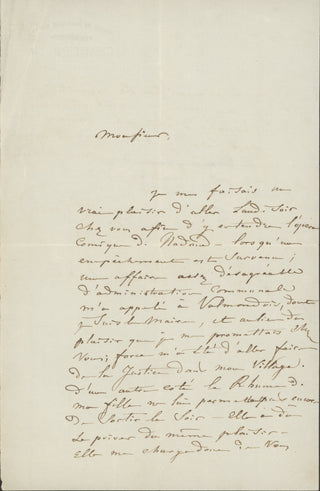 Monsieur,
Je me faisais un
vrai plaisir d'aller Lundi Soir
chez vous afin d'y entendre l'opera
Comique de Nadaud - lorsqu'un
empêchement est Survenu;
une affaire assez désagréable
d'administration Communale
m'a appelé à Valmondois, dont
je Suis le Maire, et au lieu du
plaisir que je me promettais chez
Vous, force m'a été d'aller faire
de la Justice dans mon Village.
D'un autre coté le Rhume de
ma fille ne lui permettait pas encore
De Sortir le Soir - Elle a dû
Se priver du même plaisir -
Elle me charge donc de Vous